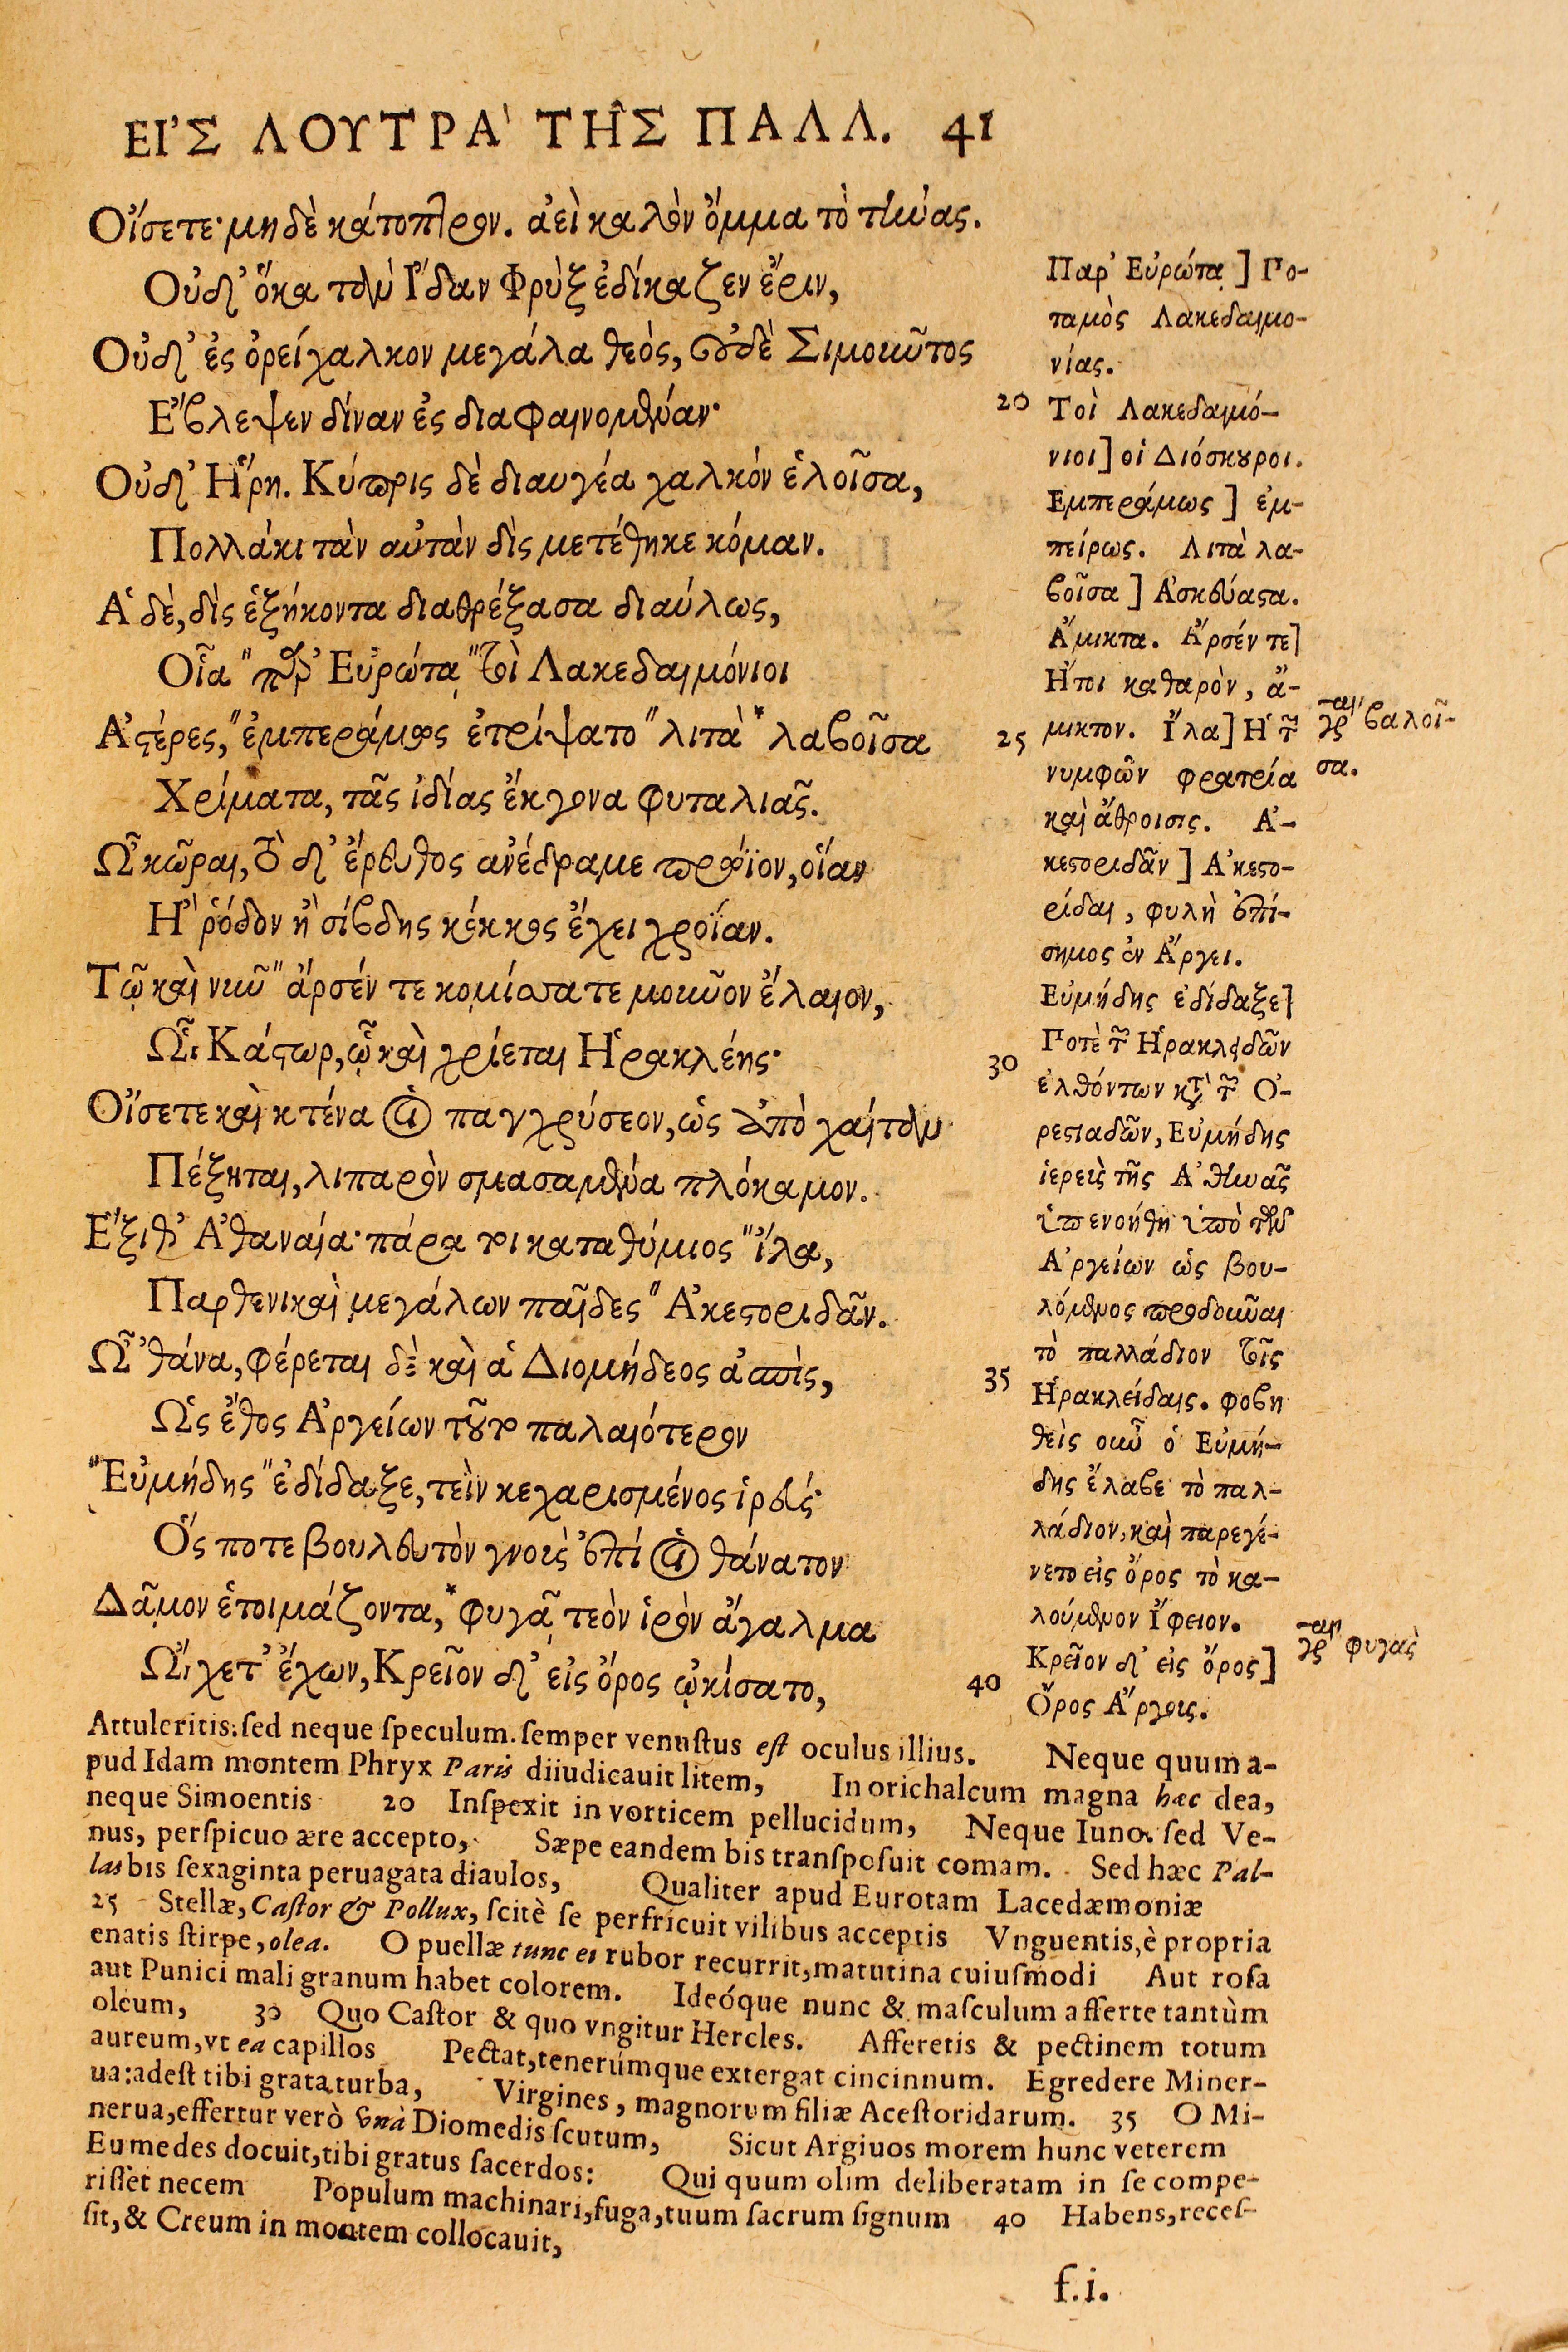 ΕΙ᾿Σ ΛΟΥΤΡΑ` ΤΗ͂Σ ΠΑΛΛ. 41
Οἴσετε· μηδὲ κάτοπτρον. ἀεὶ καλὸν ὄμμα τὸ τήνας.
Οὐδ᾿ ὅκα τὰν Ἴδαν Φρὺξ ἐδίκαζεν ἔριν,
Οὐδ᾿ ἐς ὀρείχαλκον μεγάλα θεὸς, οὐδὲ Σιμοῦντος
Ἔβλεψεν δίναν ἐς διαφαινομέναν·
Οὐδ᾿ Ἥρη. Κύπρις δὲ διαυγέα χαλκὸν ἑλοῖσα,
Πολλάκι τὰν αὐτὰν δὶς μετέθηκε κόμαν.
Ἁ δὲ, δὶς ἑξήκοντα διαθρέξασα διαύλως,
Οἷα "παρ᾿ Εὐρώτᾳ "τοὶ Λακεδαιμόνιοι
Ἀστέρες, "ἐμπεράμως ἐτρίψατο "λιτὰ * λαβοῖσα
Χρίματα, τᾶς ἰδίας ἔκγονα φυταλιᾶς.
Ὦ κῶραι, τὸ δ᾿ ἔρευθος ἀνέδραμε πρώϊον, οἵαν
Ἢ ῥόδον ἢ σίβδης κόκκος ἔχει χροΐαν.
Τῷ καὶ νῦν "ἄρσέν τε κομίσατε μοῦνον ἔλαιον,
ᾯ Κάστωρ, ᾧ καὶ χρίεται Ἡρακλέης·
Οἴσετε καὶ κτένα οἱ παγχρύσεον, ὡς ἀπὸ χαίταν
Πέξηται, λιπαρὸν σμασαμένα πλόκαμον.
Ἔξιθ᾿ Ἀθαναία· πάρα τοι καταθύμιος "ἴλα,
Παρθενικαὶ μεγάλων παῖδες "Ἀκεστοριδᾶν.
Ὦ ᾿θάνα, φέρεται δὲ καὶ ἁ Διομήδεος ἀσπὶς,
Ὡς ἔθος Ἀργείων τοῦτο παλαιότερον
"Εὐμήδης "ἐδίδαξε, τεῒν κεχαρισμένος ἱρεύς·
Ὅς ποτε βουλευτὸν γνοὺς ἐπί οἱ θάνατον
Δᾶμον ἑτοιμάζοντα, * φυγᾷ τεὸν ἱρὸν ἄγαλμα
ᾬχετ᾿ ἔχων, Κρεῖον δ᾿ εἰς ὄρος ᾠκίσατο,
Παρ᾿ Εὐρώτᾳ ] Πο-
ταμὸς Λακεδαιμο-
νίας.
20 Τοὶ Λακεδαιμό-
νιοι] οἱ Διόσκουροι.
Εμπεράμως ] ἐμ-
πείρως. Λιτὰ λα-
βοῖσα ] Ἀσκεύαστα.
Ἄμικτα. Ἄρσέν τε]
Ἤτοι καθαρὸν, ἄ-
25 μικτον. Ἴλα] Ἡ τῶν
νυμφῶν φρατρία
καὶ ἄθροισις. Ἀ-
κεστοριδᾶν ] Ἀκεστο-
ρίδαι, φυλὴ ἐπί-
σημος ἐν Ἄργει.
Εὐμήδης ἐδίδαξε]
30 Ποτὲ τῶν Ἡρακλειδῶν
ἐλθόντων κατὰ τῶν Ὀ-
ρεστιαδῶν, Εὐμήδης
ἱερεὺς τῆς Ἀθηνᾶς
ὑπενοήθη ὑπὸ τῶν
Ἀργείων ὡς βου-
λόμενος προδοῦναι
τὸ παλλάδιον τοῖς
35 Ἡρακλείδαις. φοβη
θεὶς οὖν ὁ Εὐμή-
δης ἔλαβε τὸ παλ-
λάδιον, καὶ παρεγέ-
νετο εἰς ὄρος τὸ κα-
λούμενον Ἴφειον.
Κρεῖον δ᾿ εἰς ὄρος]
40 Ὄρος Ἄργους.
γρ βαλοῖ-
σα.
γρ φυγὰς
Attuleritis: sed neque speculum. semper venustus est oculus illius. Neque quum a-
pud Idam montem Phryx Paris diiudicauit litem, In orichalcum magna hæc dea,
neque Simoentis 20 Inspexit in vorticem pellucidum, Neque Iuno. sed Ve-
nus, perspicuo ære accepto, Sæpe eandem bis transposuit comam. Sed hæc Pal-
las bis sexaginta peruagata diaulos, Qualiter apud Eurotam Lacedæmoniæ
25 Stellæ, Castor & Pollux, scitè se perfricuit vilibus acceptis Vnguentis, è propria
enatis stirpe, olea. O puellæ tunc ei rubor recurrit, matutina cuiusmodi Aut rosa
aut Punici mali granum habet colorem. Ideóque nunc & masculum afferte tantùm
oleum, 30 Quo Castor & quo vngitur Hercles. Afferetis & pectinem totum
aureum, vt ea capillos Pectat, tenerúmque extergat cincinnum. Egredere Miner-
ua: adest tibi grata turba, Virgines, magnorum filiæ Acestoridarum. 35 O Mi-
nerua, effertur verò vnà Diomedis scutum, Sicut Argiuos morem hunc veterem
Eumedes docuit, tibi gratus sacerdos: Qui quum olim deliberatam in se compe-
risset necem Populum machinari, fuga, tuum sacrum signum 40 Habens, reces-
sit, & Creum in montem collocauit,
f.i.